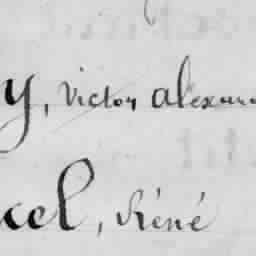 y, Victor Alexan
cel, Réné